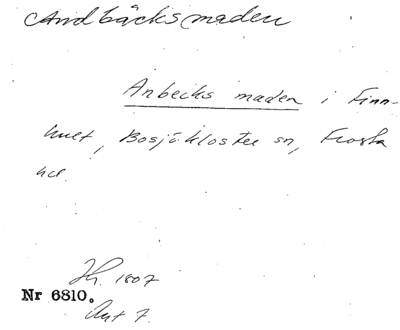 Andbäcksmaden
Anbecks maden i Finn-
hult, Bosjökloster sn, Frosta
hd.
1807
Nr 6810.
Akt 7.